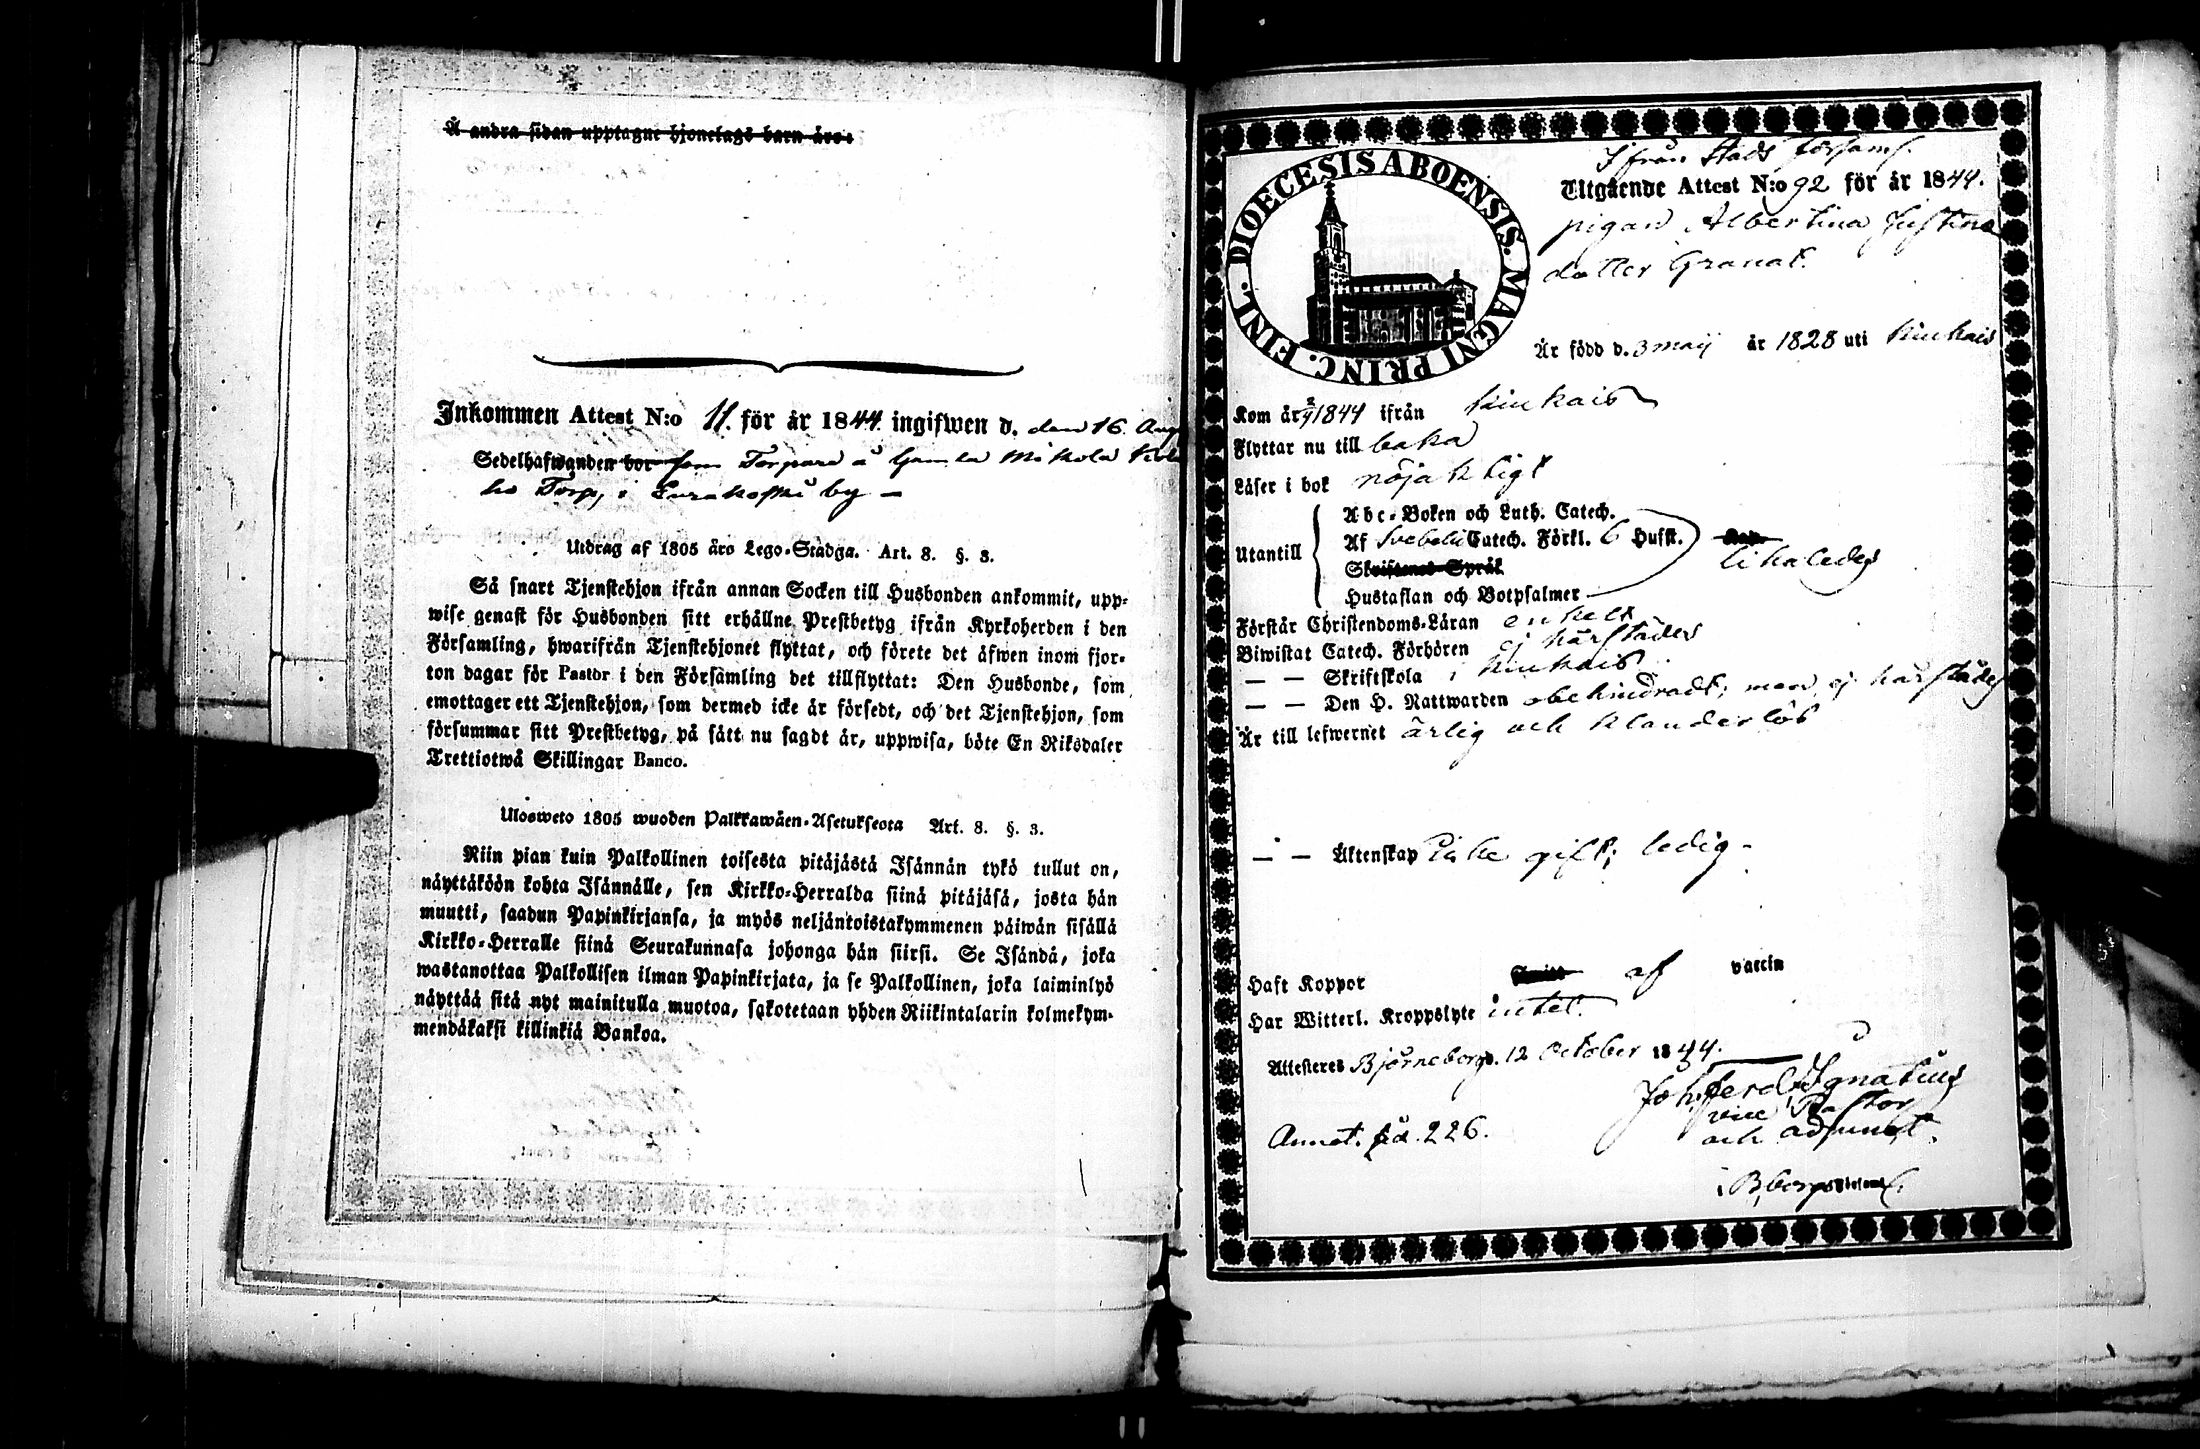 Å andra sidan upptagne hjonelags barn äro:
Inkommen Attest N:o 11. för år 1844 ingifwen d. den 16. Aug
Sedelhafwanden bor som Torpare å Gamla Mikola
Torp, i Eurakoski by –
Utdrag af 1805 års Lego-Stadga. Art. 8. §. 3.
Så snart Tjenstehjon ifrån annan Socken till Husbonden ankommit, upp-
wise genast för Husbonden sitt erhållne Prestbetyg ifrån Kyrkoherden i den
Församling, hwarifrån Tjenstehjonet flyttat, och förete det äfwen inom fjor-
ton dagar för Pastor i den Församling det tillflyttat: Den Husbonde, som
emottager ett Tjenstehjon, som dermed icke är försedt, och det Tjenstehjon, som
försummar sitt Prestbetyg, på sätt nu sagdt är, uppwisa, böte En Riksdaler
Trettiotwå Skillingar Banco.
Ulosweto 1805 wuoden Palkkawäen-Asetuksesta Art. 8. §. 3.
Niin pian kuin Palkollinen toisesta pitäjästä Isännän tykö tullut on,
näyttäköön kohta Isännälle, sen Kirkko-Herralda siinä pitäjäsä, josta hän
muutti, saadun Papinkirjansa, ja myös neljäntoistakymmenen päiwän sisällä
Kirkko-Herralle siinä Seurakunnasa johonga hän siirsi. Se Isändä, joka
wastanottaa Palkollisen ilman Papinkirjata, ja se Palkollinen, joka laiminlyö
näyttää sitä nyt mainitulla muotoa, sakotetaan yhden Riikintalarin kolmekym-
mendäkaksi killinkiä Bankoa.
DIOECESIS ABOENSIS. MAGNI PRINC. FINL.
Ifrån Stads församl.
Utgående Attest N:o 92 för år 1844.
pigan Albertina Justina
dotter Granat.
Är född d. 3 maij år 1828 uti Kiukais
Kom år 1844 ifrån Kiukais
Flyttar nu till baka
Läser i bok nöjaktigt
Utantill
Abc-Boken och Luth. Catech.
Af Svebelii Catech. Förkl. 6 Hufst.
likaledes
Skriftenes Språk
Hustaflan och Botpsalmer
Förstår Christendoms-Läran enkelt
Biwistat Catech. Förhören ej härstädes
— — Skriftskola i Kiukais
— — Den H. Nattwarden obehindradt; men ej härstädes
Är till lefwernet ärlig och klanderlös
— — Äktenskap icke gift; ledig –
Haft Koppor af vaccin
Har Witterl. Kroppslyte intet.
Attesteres Björneborg d. 12 October 1844.
Joh. Ferd. Ignatius
vice Pastor
och adjunct.
Annot. på. 226.
i B.borgs